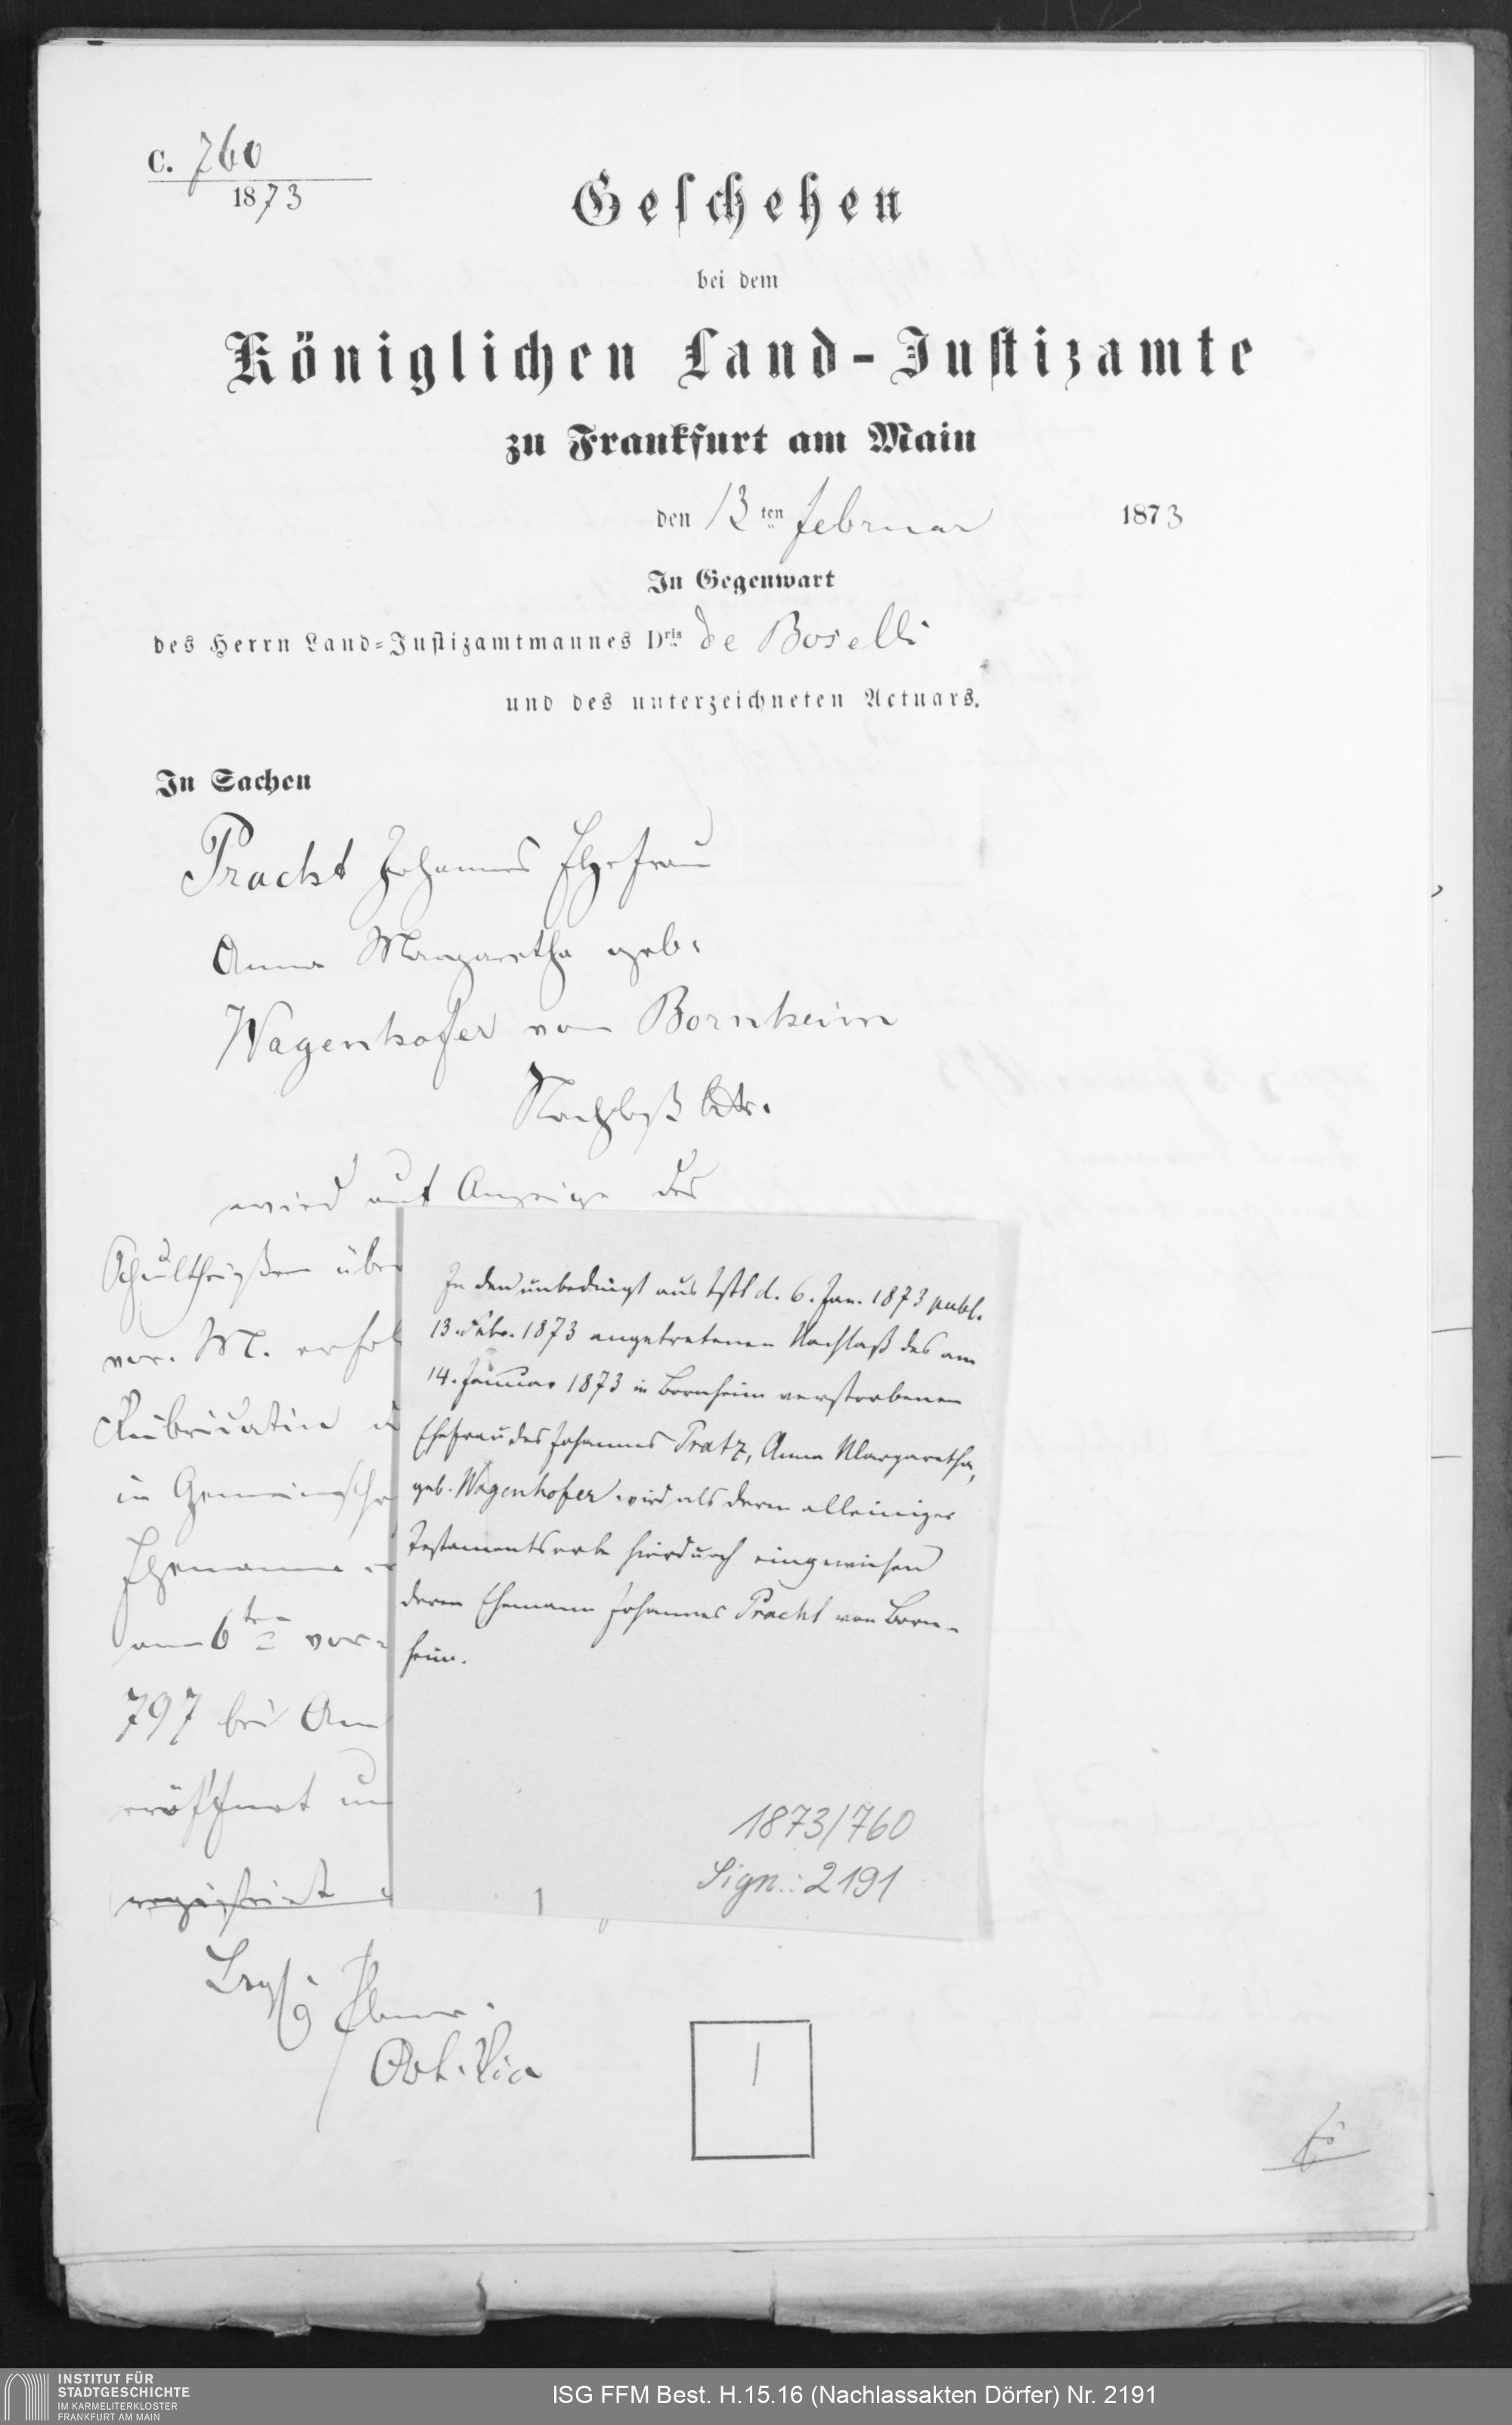 C. 760
1873
Geschehen
bei dem
Königlichen Land-Justizamte
zu Frankfurt am Main
den 13ten Februar 1873
In Gegenwart
des Herrn Land-Justizamtmannes Dris de Boselli
und des unterzeichneten Actuars.
In Sachen
Pracht Johannes Ehefrau
Anna Margaretha geb.
Wagenhofer von Bornheim
Nachlaß btr.
wird auf Anzeige des
Schultheißen über
vor. M. erfol
Rubricatin
in Gemeinscha
Ehemanne
am 6ten vor.
797 bei Am
eröffnet un
In den unbedingt aus Tstt d. 6. Jan. 1873 publ.
13. Febr. 1873 angetretenen Nachlaß des am
14. Januar 1873 in Bornheim verstorbenen
Ehefrau des Johannes Pratz, Anna Margaretha,
geb. Wagenhofer wird als deren alleiniger
Testamentserbe hierdurch eingewiesen
deren Ehemann Johannes Pracht von Born-
heim.
1873/760
Sign.: 2191
1
1
INSTITUT FÜR
STADTGESCHICHTE
IM KARMELITERKLOSTER
FRANKFURT AM MAIN
ISG FFM Best. H.15.16 (Nachlassakten Dörfer) Nr. 2191